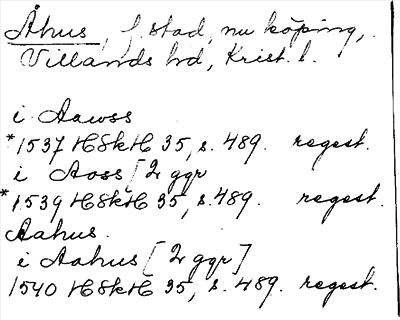 Åhus, f. stad, nu köping,
Villands hd, Krist. l.
i Aawss
*1537 HSkH 35, s. 489. regest.
i Aoss [2 ggr
*1539 HSkH 35, s. 489. regest.
Aahus.
i Aahus [2 ggr]
1540 HSkH 35, s. 489. regest.